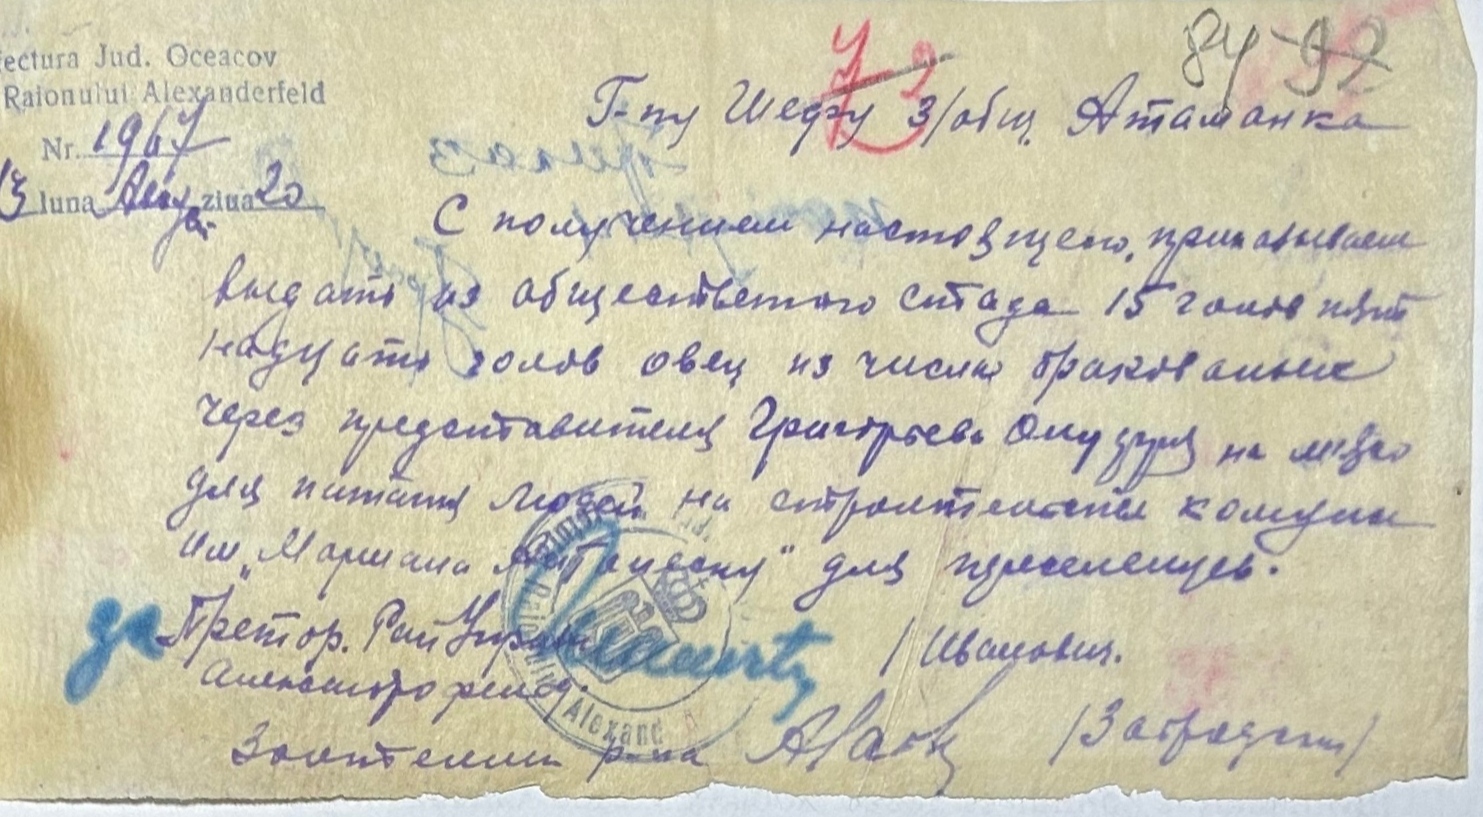 84-92
73
fectura Jud. Oceacov
Raionului Alexanderfeld
Nr. 1967
3 luna Авгу ziua 20
Г-ну Шефу З/общ Атаманка
С получением настоящего, приказываем
выдать из общественного стада 15 голов пят
надцать голов овец из числа бракованых
через представителя Григорьева на мясо
для питания людей на строительстве комуны
им „Мариана Антонеску" для переселенцев.
за Претор. Рай Управы / Иванович.
Александрофельд.
Зоотехник р-на /Заградский/
Alexand